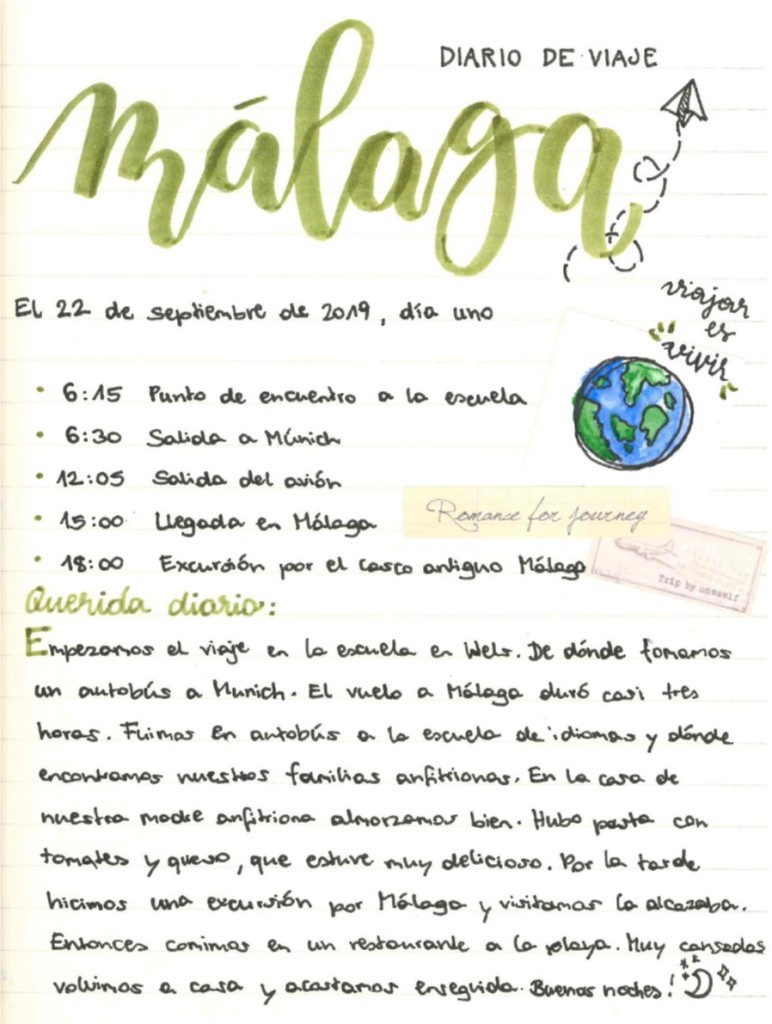 DIARIO DE VIAJE
málaga
viajar
es
vivir
El 22 de septiembre de 2019, día uno
• 6:15 Punto de encuentro a la escuela
• 6:30 Salida a Múnich
• 12:05 Salida del avión
• 15:00 Llegada en Málaga
Romance for journey
• 18:00 Excursión por el casco antiguo Málaga
Trip by oneself
Querida diario:
Empezamos el viaje en la escuela en Wels. De dónde tomamos
un autobús a Munich. El vuelo a Málaga duró casi tres
horas. Fuimos en autobús a la escuela de idiomas y dónde
encontramos nuestros familias anfitrionas. En la casa de
nuestra madre anfitriona almorzamos bien. Hubo pasta con
tomates y queso, que estuve muy delicioso. Por la tarde
hicimos una excursión por Málaga y visitamos la alcazaba.
Entonces comimos en un restaurante a la playa. Muy cansados
volvimos a casa y acostamos enseguida. Buenas noches!